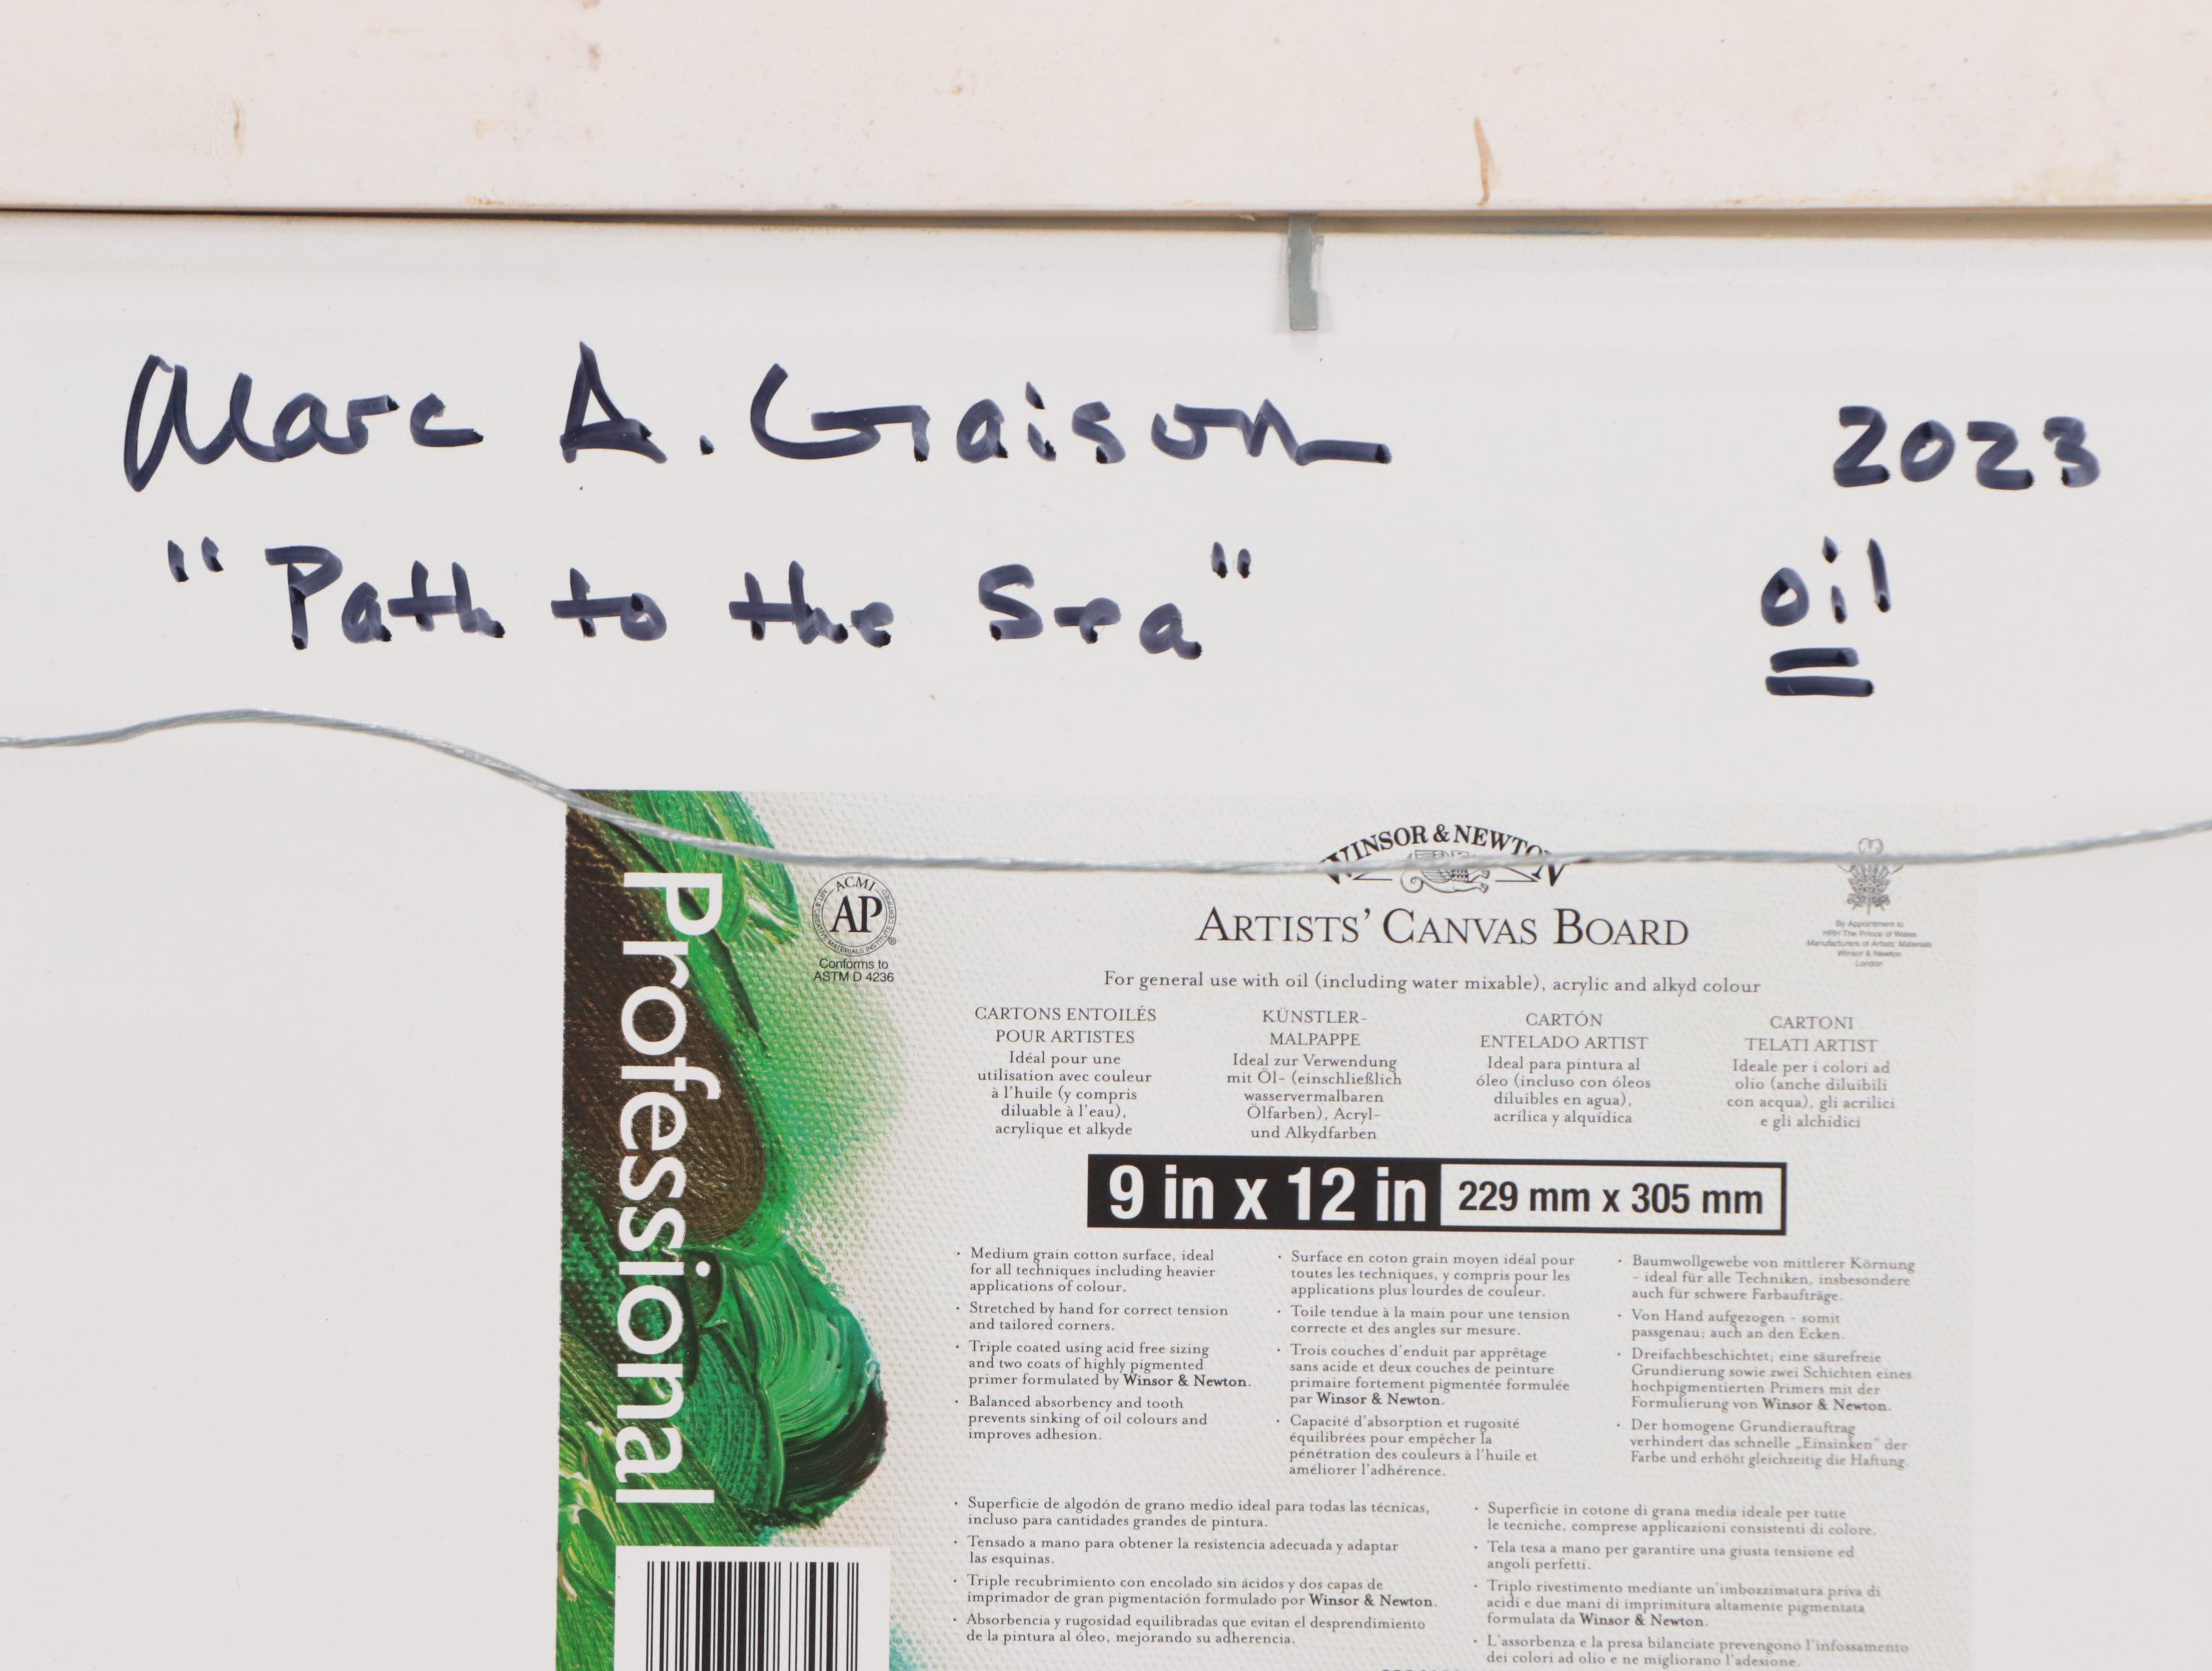 Marc A. Graison 2023
"Path to the Sea" oil
WINSOR & NEWTON
Professional
ACMI
AP
ART & CREATIVE MATERIALS INSTITUTE CERTIFIED
®
Conforms to
ASTM D 4236
ARTISTS' CANVAS BOARD
By Appointment to
HRH The Prince of Wales
Manufacturers of Artists' Materials
Winsor & Newton
London
For general use with oil (including water mixable), acrylic and alkyd colour
CARTONS ENTOILÉS
POUR ARTISTES
Idéal pour une
utilisation avec couleur
à l'huile (y compris
diluable à l'eau),
acrylique et alkyde
KÜNSTLER-
MALPAPPE
Ideal zur Verwendung
mit Öl- (einschließlich
wasservermalbaren
Ölfarben), Acryl-
und Alkydfarben
CARTÓN
ENTELADO ARTIST
Ideal para pintura al
óleo (incluso con óleos
diluibles en agua),
acrílica y alquídica
CARTONI
TELATI ARTIST
Ideale per i colori ad
olio (anche diluibili
con acqua), gli acrilici
e gli alchidici
9 in x 12 in 229 mm x 305 mm
· Medium grain cotton surface, ideal
for all techniques including heavier
applications of colour.
· Stretched by hand for correct tension
and tailored corners.
· Triple coated using acid free sizing
and two coats of highly pigmented
primer formulated by Winsor & Newton.
· Balanced absorbency and tooth
prevents sinking of oil colours and
improves adhesion.
· Surface en coton grain moyen idéal pour
toutes les techniques, y compris pour les
applications plus lourdes de couleur.
· Toile tendue à la main pour une tension
correcte et des angles sur mesure.
· Trois couches d'enduit par apprêtage
sans acide et deux couches de peinture
primaire fortement pigmentée formulée
par Winsor & Newton.
· Capacité d'absorption et rugosité
équilibrées pour empêcher la
pénétration des couleurs à l'huile et
améliorer l'adhérence.
· Baumwollgewebe von mittlerer Körnung
- ideal für alle Techniken, insbesondere
auch für schwere Farbaufträge.
· Von Hand aufgezogen - somit
passgenau; auch an den Ecken.
· Dreifachbeschichtet; eine säurefreie
Grundierung sowie zwei Schichten eines
hochpigmentierten Primers mit der
Formulierung von Winsor & Newton.
· Der homogene Grundierauftrag
verhindert das schnelle „Einsinken" der
Farbe und erhöht gleichzeitig die Haftung.
· Superficie de algodón de grano medio ideal para todas las técnicas,
incluso para cantidades grandes de pintura.
· Tensado a mano para obtener la resistencia adecuada y adaptar
las esquinas.
· Triple recubrimiento con encolado sin ácidos y dos capas de
imprimador de gran pigmentación formulado por Winsor & Newton.
· Absorbencia y rugosidad equilibradas que evitan el desprendimiento
de la pintura al óleo, mejorando su adherencia.
· Superficie in cotone di grana media ideale per tutte
le tecniche, comprese applicazioni consistenti di colore.
· Tela tesa a mano per garantire una giusta tensione ed
angoli perfetti.
· Triplo rivestimento mediante un'imbozzimatura priva di
acidi e due mani di imprimitura altamente pigmentata
formulata da Winsor & Newton.
· L'assorbenza e la presa bilanciate prevengono l'infossamento
dei colori ad olio e ne migliorano l'adesione.